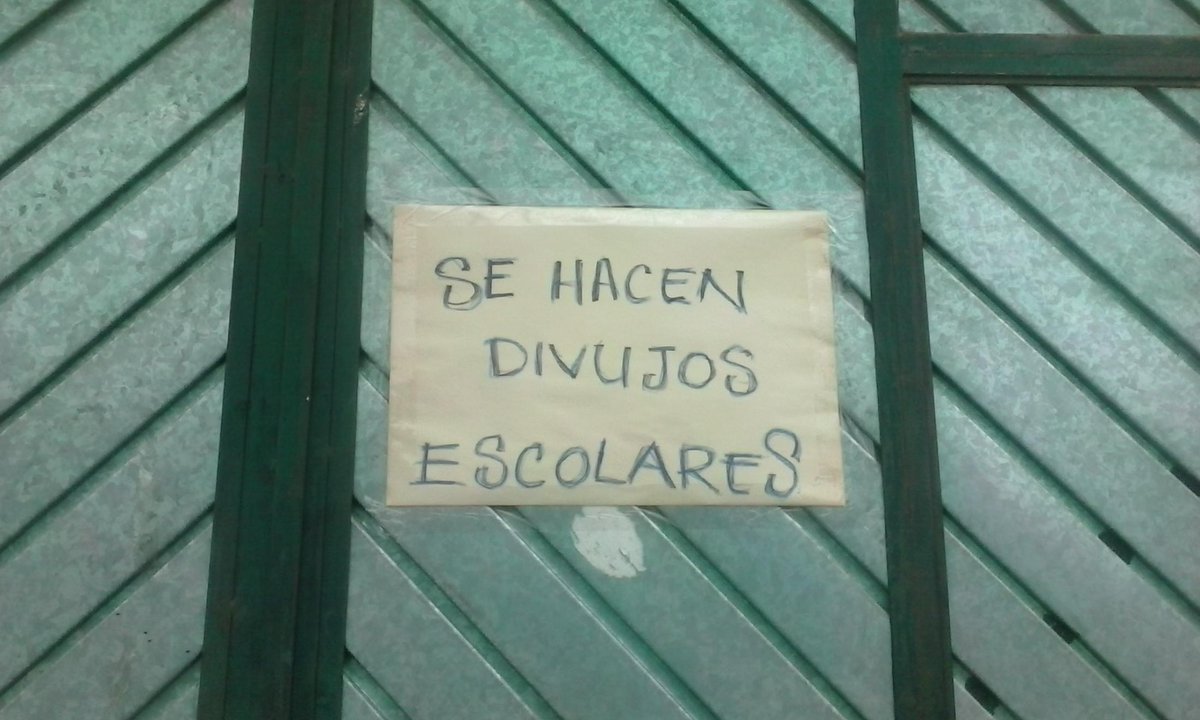 SE HACEN
DIVUJOS
ESCOLARES